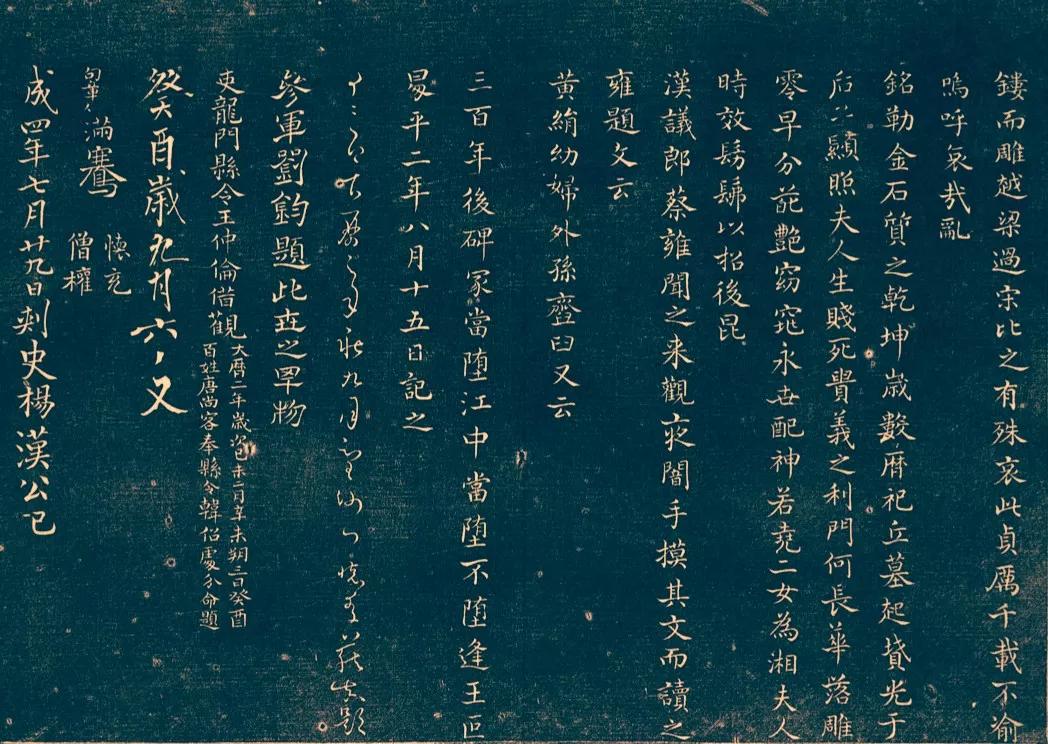 鏤而雕越梁過宋比之有殊哀此貞厲千載不渝
嗚呼哀哉亂
銘勒金石質之乾坤歲數曆祀丘墓起墳光于
后土顯照夫人生賤死貴義之利門何長華落雕
零早分葩艷窈窕永世配神若堯二女為湘夫人
時效髣髴以招後昆
漢議郎蔡雍聞之來觀夜闇手摸其文而讀之
雍題文云
黃絹幼婦外孫齏臼又云
三百年後碑冢當墮江中當墮不墮逢王叵
昇平二年八月十五日記之
九月
參軍劉鈞題此世之罕物
吏龍門縣令王仲倫借觀
大曆二年歲次丁未二月辛未朔三日癸酉
百姓唐 客奉縣令韓 處分命題
癸酉歲九月六又
滿騫
懷充
僧權
成四年七月廿九日刺史楊漢公記